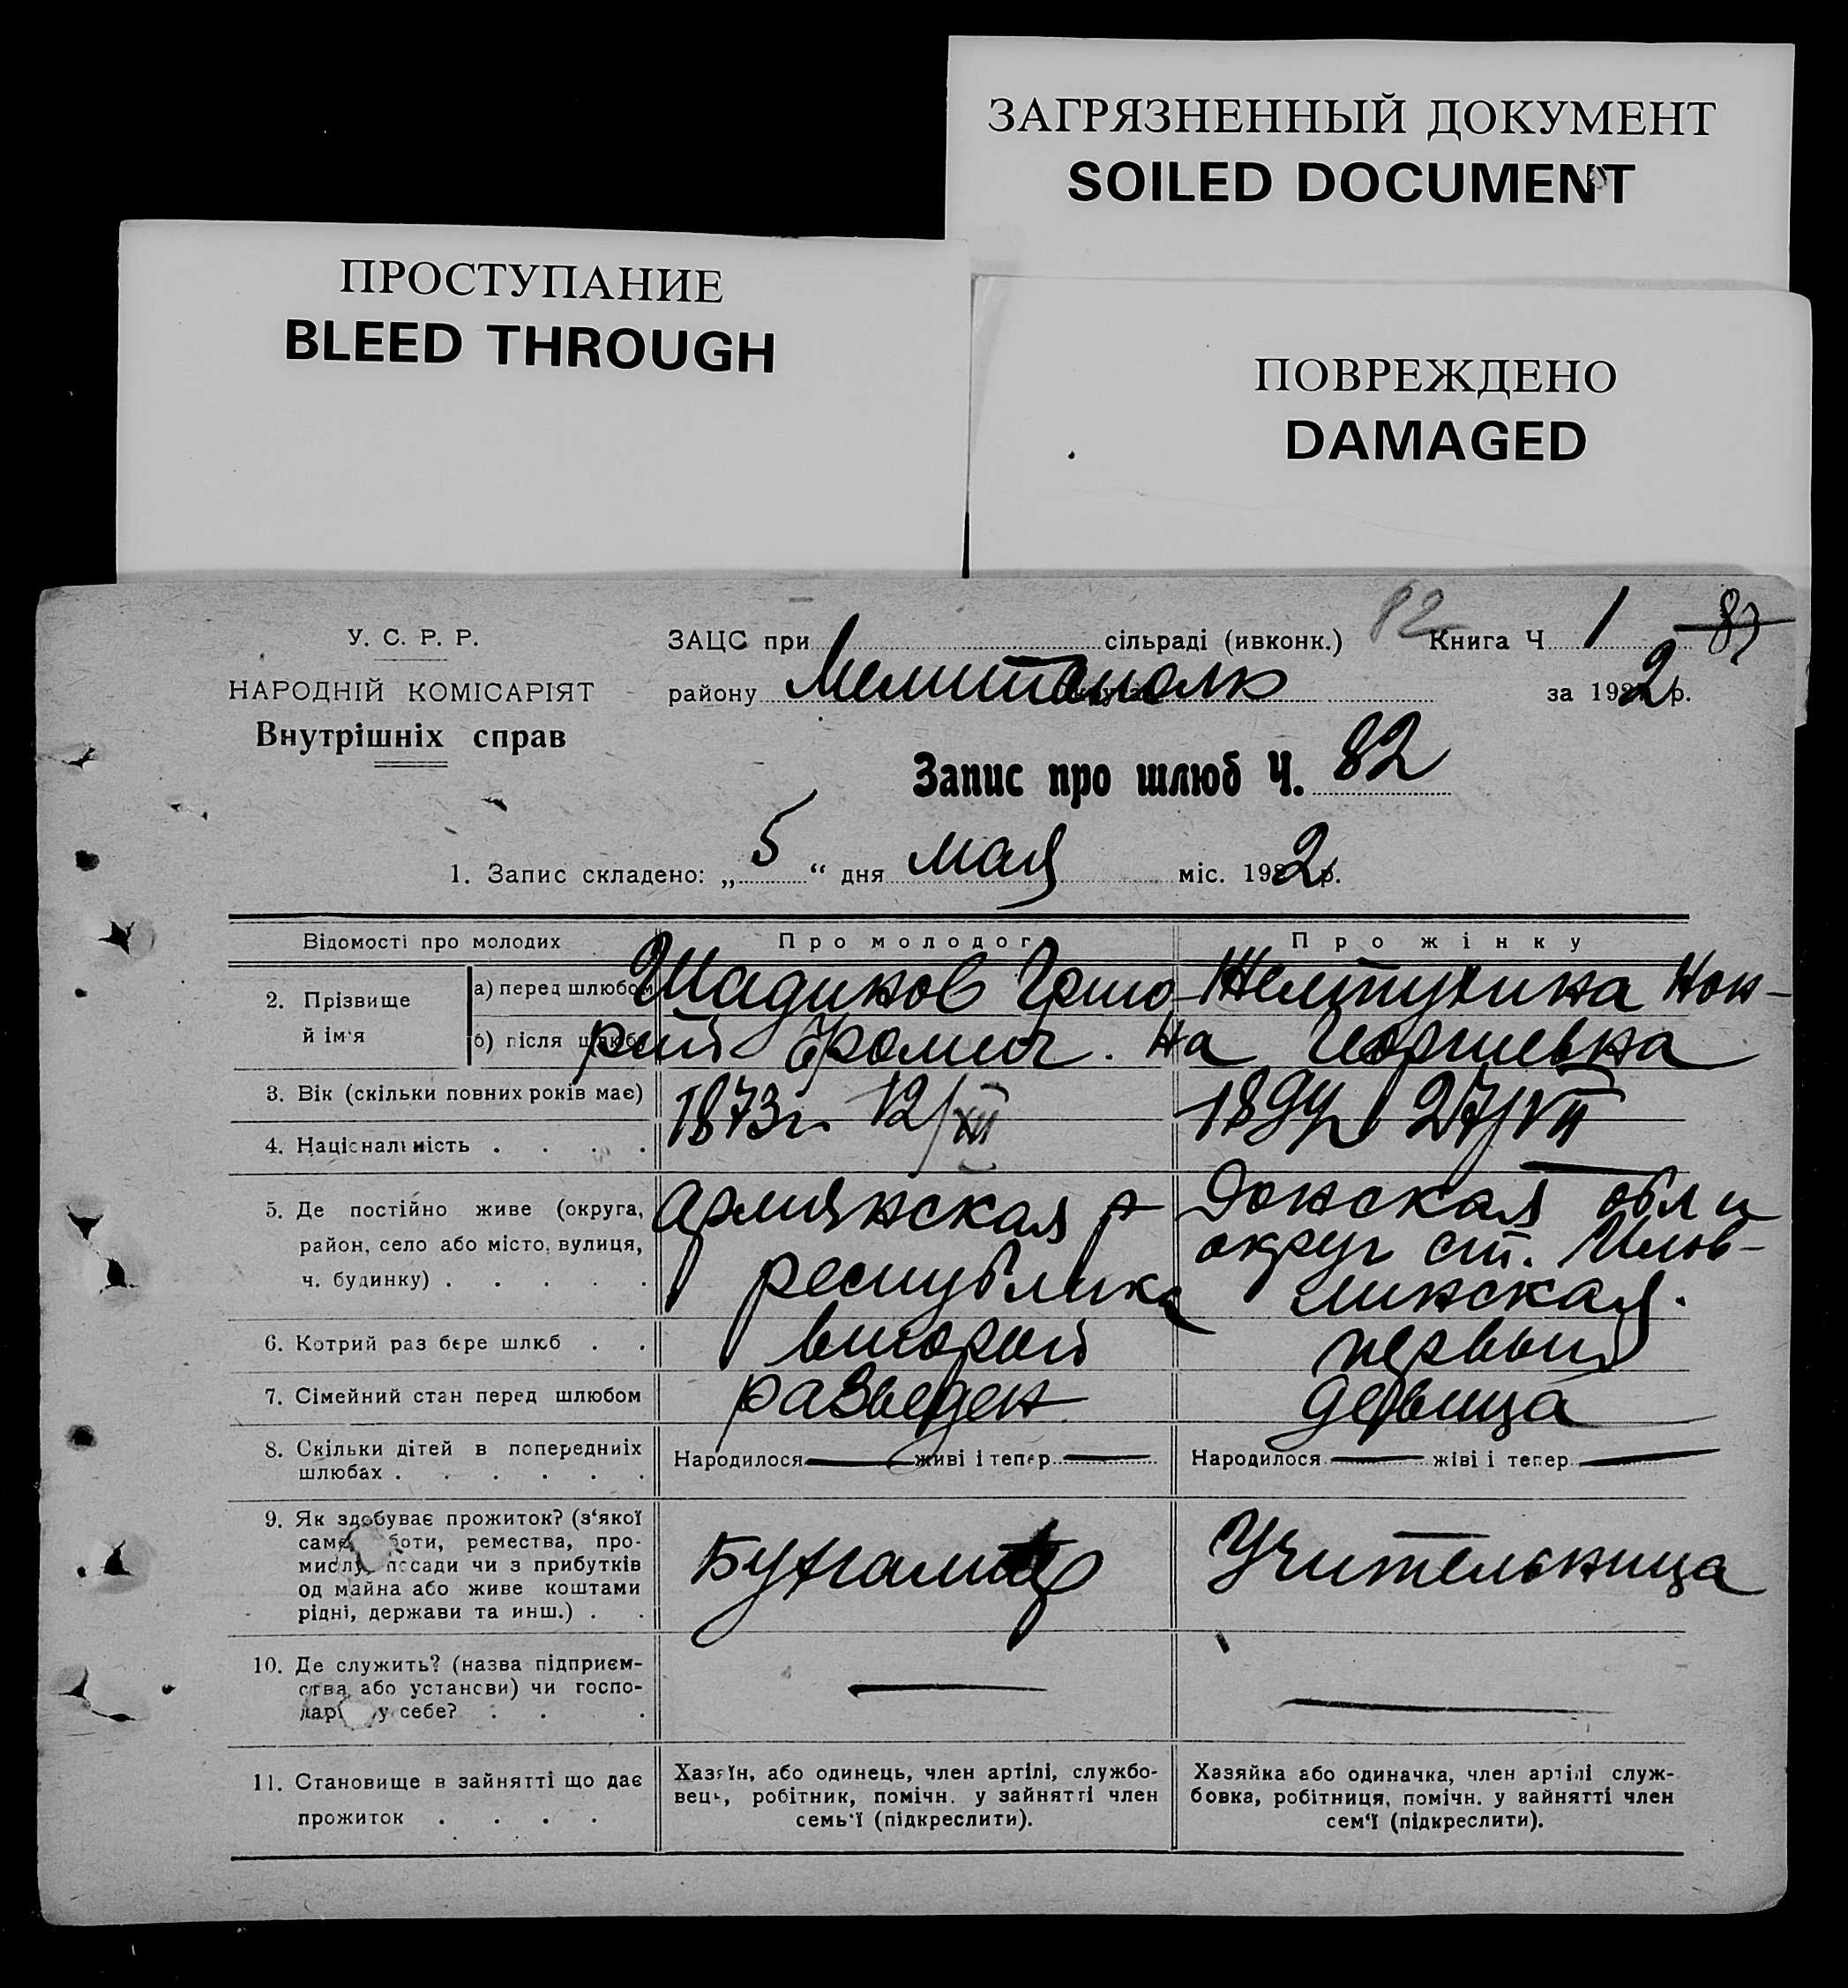 ЗАГРЯЗНЕННЫЙ ДОКУМЕНТ
SOILED DOCUMENT
ПРОСТУПАНИЕ
BLEED THROUGH
ПОВРЕЖДЕНО
DAMAGED
У. С. Р. Р.
НАРОДНІЙ КОМІСАРІЯТ
Внутрішніх справ
ЗАЦС при сільраді (ивконк.) 82 Книга Ч 1
району Мелитополь за 1922 р.
Запис про шлюб Ч. 82
1. Запис складено: „5“ дня мая міс. 1922 р.
Відомості про молодих
Про молодог
Про жінку
2. Прізвище й ім'я
а) перед шлюбом
б) після
Шадинов Григо-
рий
Желтухина Нон-
на Георгиевна
3. Вік (скільки повних років має)
1873г. 12/XII
27/VII
4. Національність
5. Де постійно живе (округа,
район, село або місто, вулиця,
ч. будинку)
Армянская
республика
Донская обл и
округ ст. Илов-
линская.
6. Котрий раз бере шлюб
второй
первый
7. Сімейний стан перед шлюбом
разведен
девица
8. Скільки дітей в попередниіх
шлюбах
Народилося — живі і тепер —
Народилося — жіві і тепер —
9. Як здобуває прожиток? (з'якої
саме роботи, ремества, про-
мислу, посади чи з прибутків
од майна або живе коштами
рідні, держави та инш.)
Бухгалтер
Учительница
10. Де служить? (назва підприєм-
ства або установи) чи госпо-
дар у себе?
—
—
11. Становище в зайнятті що дає
прожиток
Хазяїн, або одинець, член артілі, службо-
вець, робітник, помічн. у зайнятті член
семь'ї (підкреслити).
Хазяйка або одиначка, член артілі служ-
бовка, робітниця, помічн. у зайнятті член
сем'ї (підкреслити).